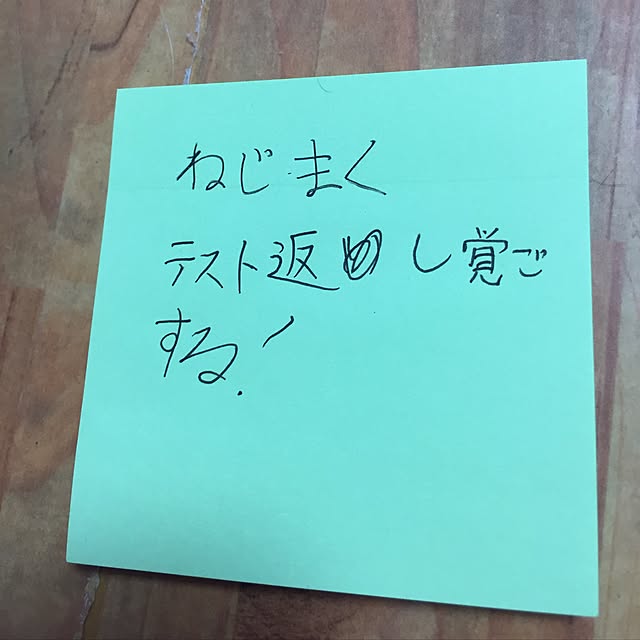 ねじまく
テスト返し覚ご
する!